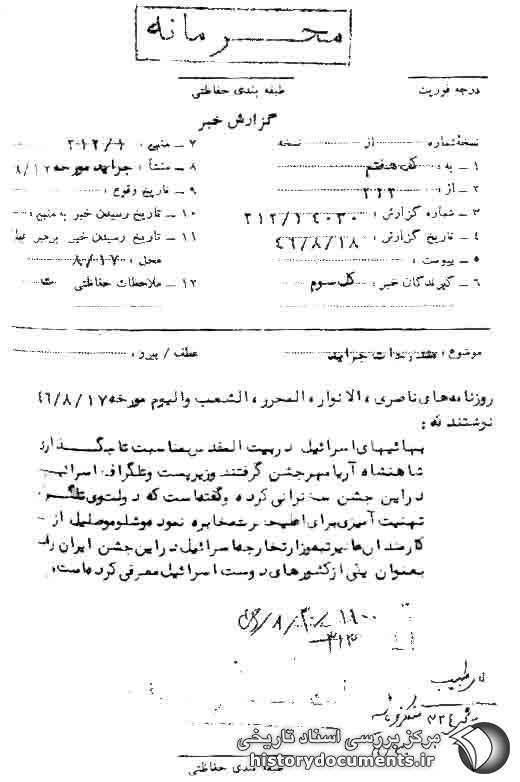 محرمانه
درجه فوریت
طبقه بندی حفاظتی
گزارش خبر
نسخه شماره از نسخه
۱ ـ به : کل هفتم
۲ ـ از : ۲۱۲
۳ ـ شماره گزارش : ۲۱۲/۱۴۰۳۰
۴ ـ تاریخ گزارش : ۴۶/۸/۱۸
۵ ـ پیوست :
۶ ـ گیرندگان خبر : کل سوم
۷ ـ منبع :
۸ ـ منشأ : جراید مورخه ۸/۱۷
۹ ـ تاریخ وقوع :
۱۰ ـ تاریخ رسیدن خبر به منبع :
۱۱ ـ تاریخ رسیدن خبر برهبر
محل : ۸/۱۷
۱۲ ـ ملاحظات حفاظتی
موضوع : مندرجات جراید
عطف / پیرو :
روزنامه های ناصری ، الانوار ، المحرر ، الشعب والیوم مورخه ۴۶/۸/۱۷
نوشتند که :
بهائیهای اسرائیل در بیت المقدس بمناسبت تاجگذاری
شاهنشاه آریامهر جشن گرفتند وزیر پست وتلگراف اسرائیل
در این جشن سخنرانی کرده وگفته است که دولت وی تلگرام
تهنیت آمیزی برای اعلیحضرت مخابره نمود
کارمندان عالیرتبه وزارتخارجه اسرائیل در این جشن ایران را
بعنوان یکی از کشورهای دوست اسرائیل معرفی کرده است .
طبقه بندی حفاظتی
مرکز بررسی اسناد تاریخی
historydocuments.ir